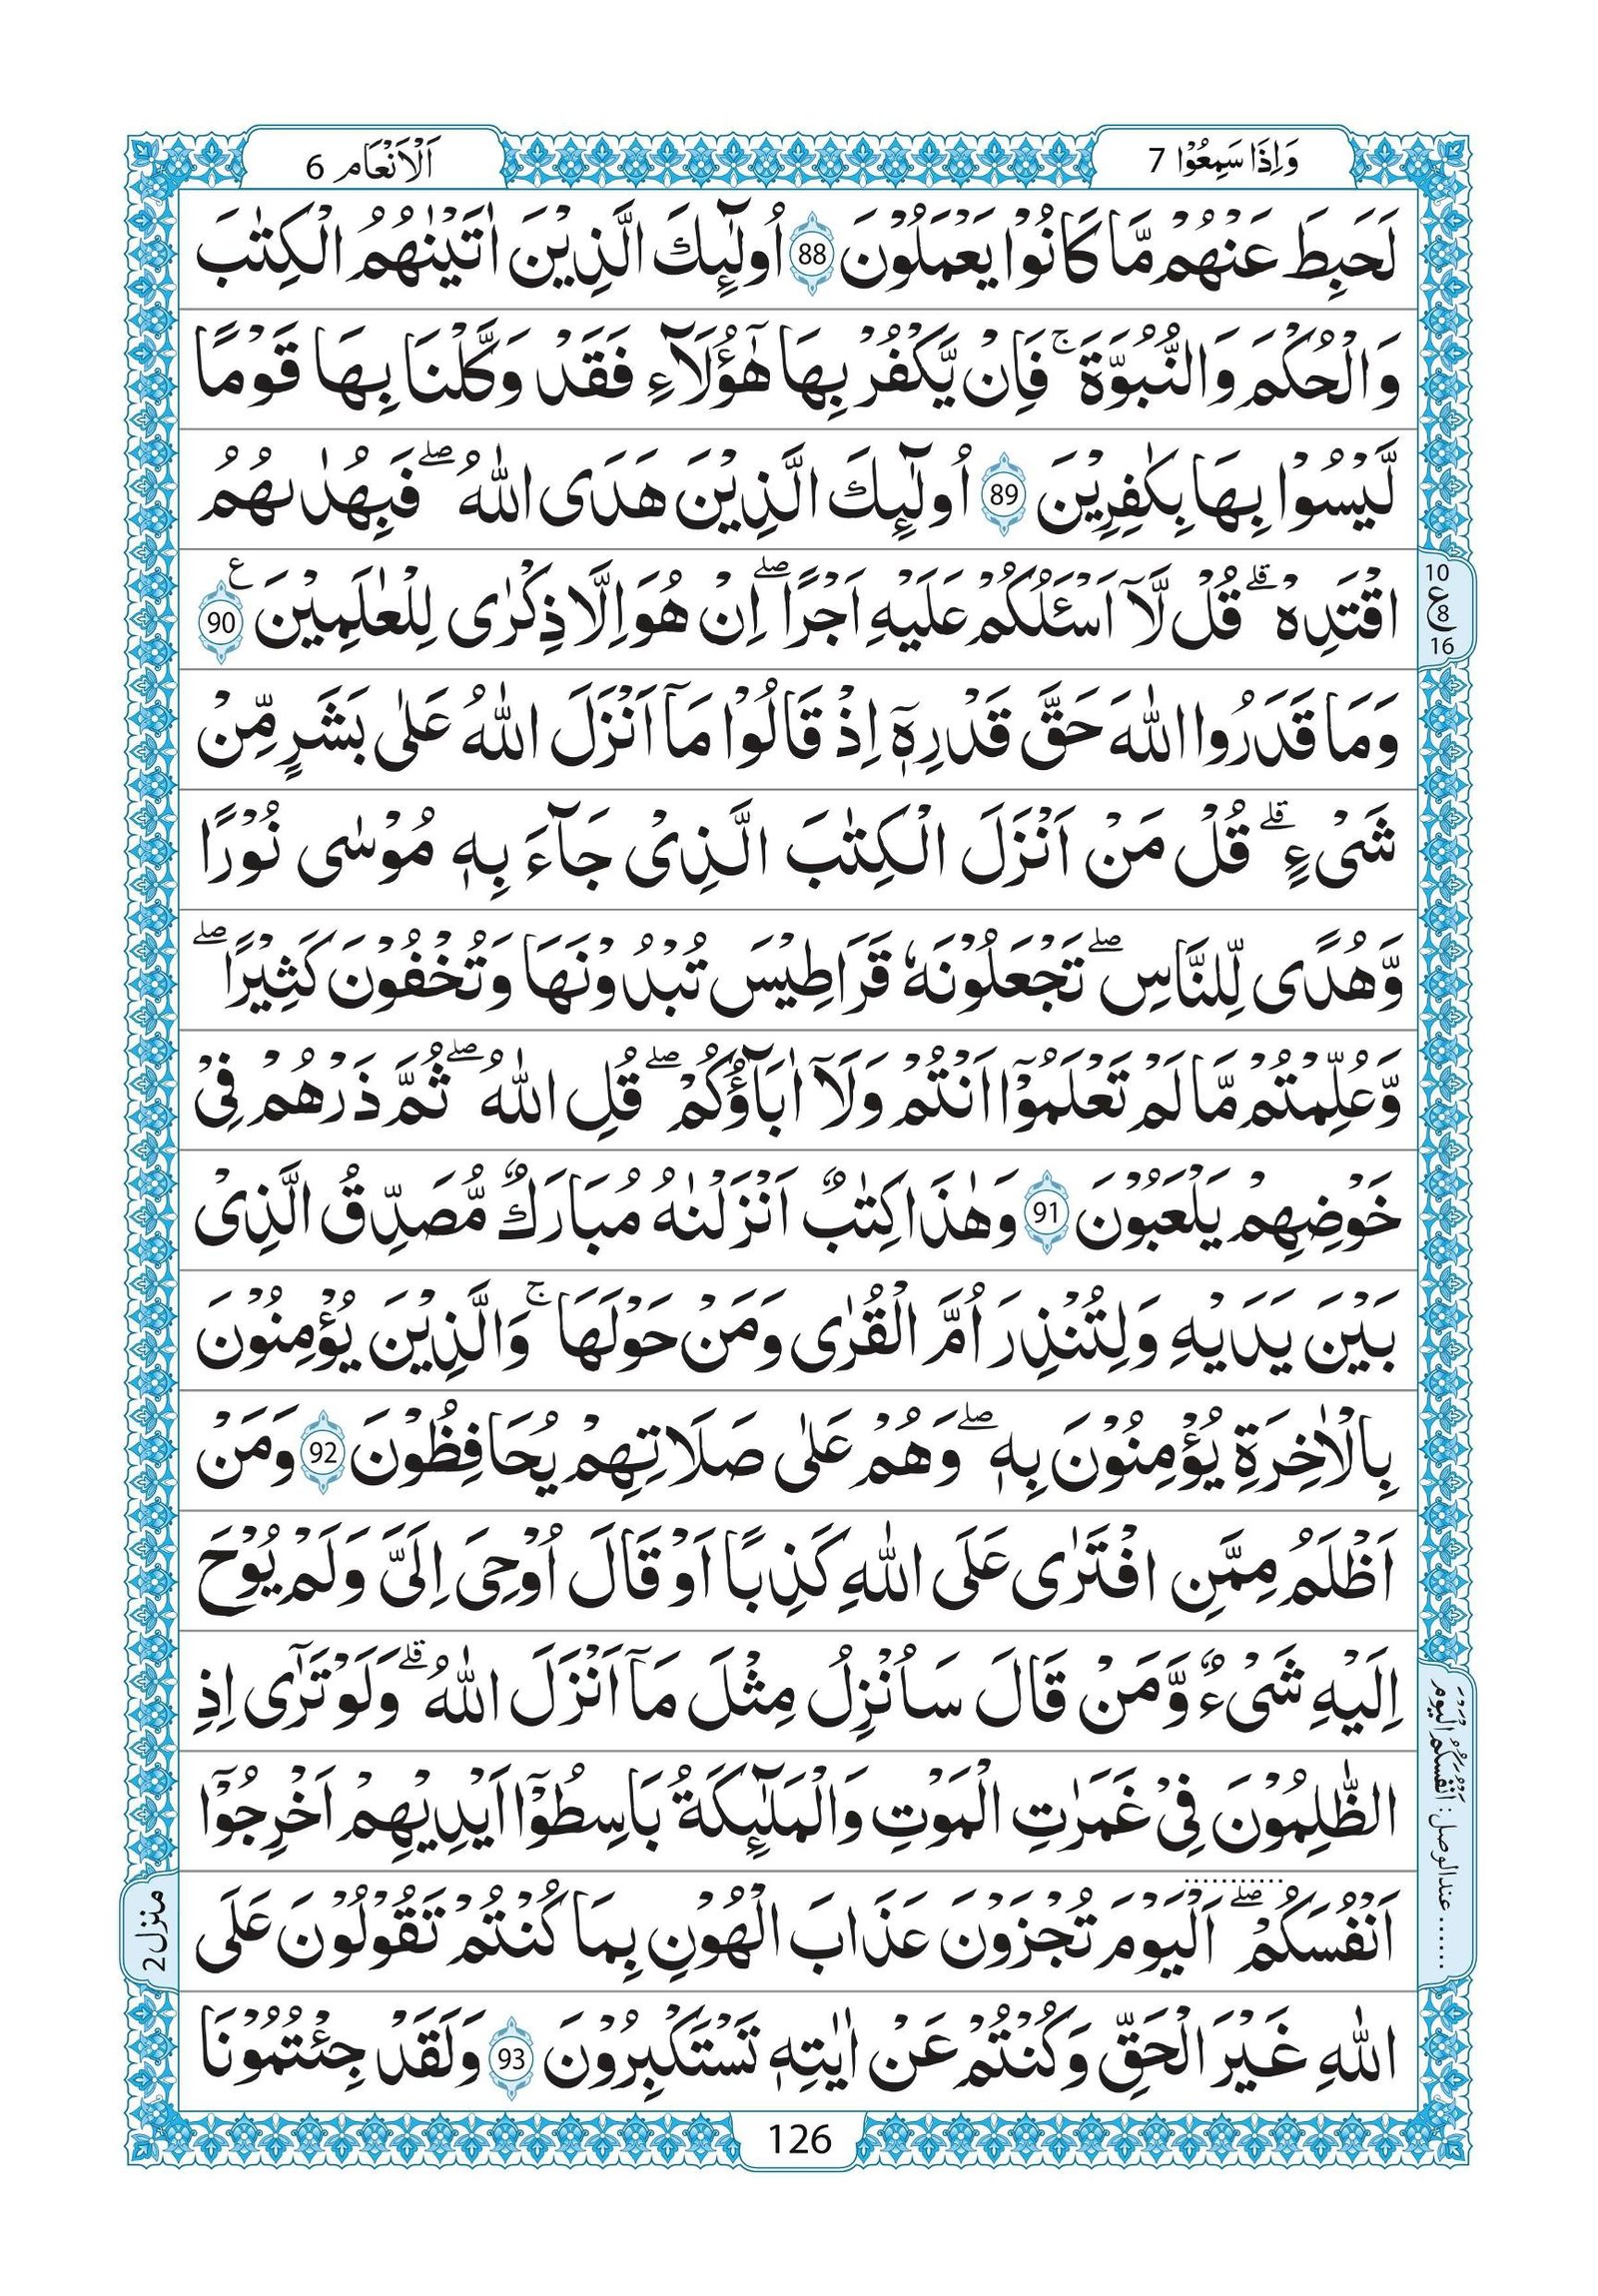 وَاِذَا سَمِعُوْا 7
اَلْاَنْعَام 6
لَحَبِطَ عَنْهُمْ مَّا كَانُوْا يَعْمَلُوْنَ 88 اُولٰٓئِكَ الَّذِيْنَ اٰتَيْنٰهُمُ الْكِتٰبَ
وَالْحُكْمَ وَالنُّبُوَّةَ ۚ فَاِنْ يَّكْفُرْ بِهَا هٰٓؤُلَآءِ فَقَدْ وَكَّلْنَا بِهَا قَوْمًا
لَّيْسُوْا بِهَا بِكٰفِرِيْنَ 89 اُولٰٓئِكَ الَّذِيْنَ هَدَى اللّٰهُ ۖ فَبِهُدٰىهُمُ
اقْتَدِهْ ۗ قُلْ لَّآ اَسْـَٔلُكُمْ عَلَيْهِ اَجْرًا ۖ اِنْ هُوَ اِلَّا ذِكْرٰى لِلْعٰلَمِيْنَ ع 90
10
ع 8
16
وَمَا قَدَرُوا اللّٰهَ حَقَّ قَدْرِهٖٓ اِذْ قَالُوْا مَآ اَنْزَلَ اللّٰهُ عَلٰى بَشَرٍ مِّنْ
شَىْءٍ ۗ قُلْ مَنْ اَنْزَلَ الْكِتٰبَ الَّذِىْ جَآءَ بِهٖ مُوْسٰى نُوْرًا
وَّهُدًى لِّلنَّاسِ ۖ تَجْعَلُوْنَهٗ قَرَاطِيْسَ تُبْدُوْنَهَا وَتُخْفُوْنَ كَثِيْرًا ۖ
وَّعُلِّمْتُمْ مَّا لَمْ تَعْلَمُوْٓا اَنْتُمْ وَلَآ اٰبَآؤُكُمْ ۖ قُلِ اللّٰهُ ۖ ثُمَّ ذَرْهُمْ فِىْ
خَوْضِهِمْ يَلْعَبُوْنَ 91 وَهٰذَا كِتٰبٌ اَنْزَلْنٰهُ مُبَارَكٌ مُّصَدِّقُ الَّذِىْ
بَيْنَ يَدَيْهِ وَلِتُنْذِرَ اُمَّ الْقُرٰى وَمَنْ حَوْلَهَا ۚ وَالَّذِيْنَ يُؤْمِنُوْنَ
بِالْاٰخِرَةِ يُؤْمِنُوْنَ بِهٖ ۖ وَهُمْ عَلٰى صَلَاتِهِمْ يُحَافِظُوْنَ 92 وَمَنْ
اَظْلَمُ مِمَّنِ افْتَرٰى عَلَى اللّٰهِ كَذِبًا اَوْ قَالَ اُوْحِىَ اِلَىَّ وَلَمْ يُوْحَ
اِلَيْهِ شَىْءٌ وَّمَنْ قَالَ سَاُنْزِلُ مِثْلَ مَآ اَنْزَلَ اللّٰهُ ۗ وَلَوْ تَرٰٓى اِذِ
الظّٰلِمُوْنَ فِىْ غَمَرٰتِ الْمَوْتِ وَالْمَلٰٓئِكَةُ بَاسِطُوْٓا اَيْدِيْهِمْ اَخْرِجُوْٓا
اَنْفُسَكُمْ ۖ اَلْيَوْمَ تُجْزَوْنَ عَذَابَ الْهُوْنِ بِمَا كُنْتُمْ تَقُوْلُوْنَ عَلَى
اللّٰهِ غَيْرَ الْحَقِّ وَكُنْتُمْ عَنْ اٰيٰتِهٖ تَسْتَكْبِرُوْنَ 93 وَلَقَدْ جِئْتُمُوْنَا
...... عندالوصل: اَنْفُسَكُمُ الْيَوْمَ
منزل 2
126